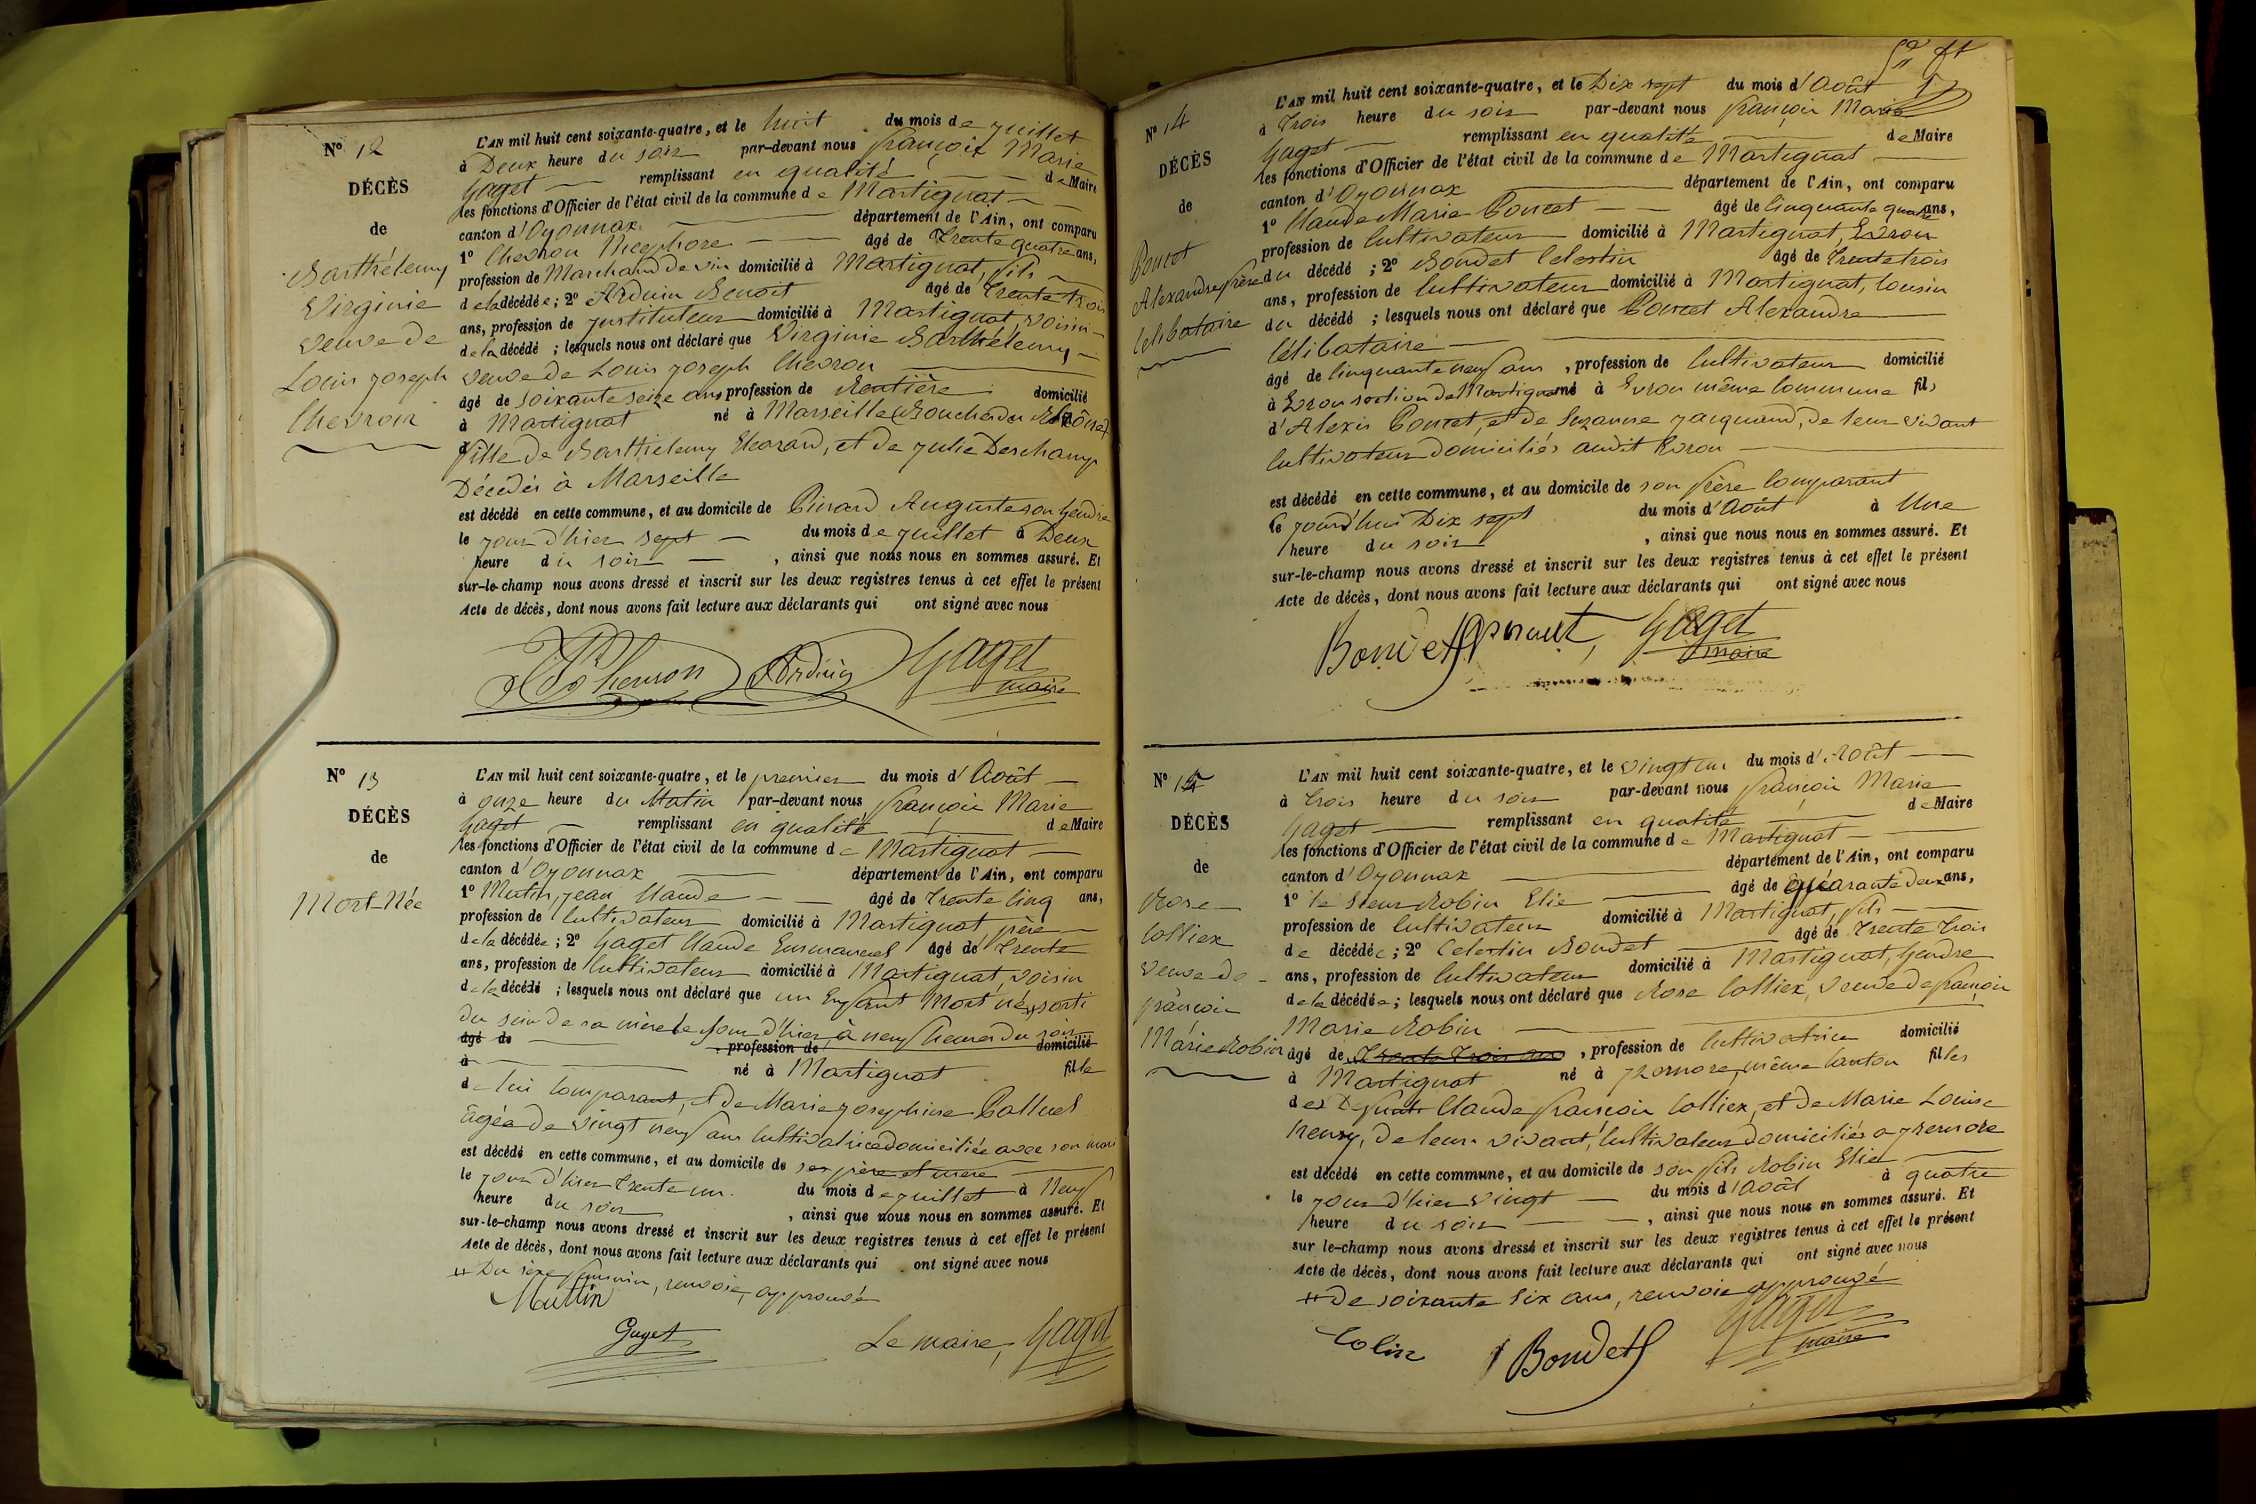 N° 12
DÉCÈS
de
Barthélemy
Virginie
veuve de
Louis Joseph
Chevron
L'AN mil huit cent soixante-quatre, et le huit du mois de juillet
à Deux heure du soir par-devant nous françois Marie
Gaget remplissant en qualité de Maire
les fonctions d'Officier de l'état civil de la commune de Martignat
canton d'Oyonnax département de l'Ain, ont comparu
1° Chevron Nicephore âgé de Trente quatre ans,
profession de Marchand de vin domicilié à Martignat, fils
de la décédée ; 2° Arduin Benoit âgé de Trente trois
ans, profession de Instituteur domicilié à Martignat voisin
de la décédé ; lesquels nous ont déclaré que Virginie Barthélemy
veuve de Louis Joseph Chevron
âgé de soixante seize ans profession de Rentière domicilié
à Martignat né à Marseille (Bouches du Rhône)
fille de Barthélemy, et de Julie Deschamp
Décédés à Marseille
est décédé en cette commune, et au domicile de Auguste son gendre
le jour d'hier sept du mois de juillet à Deux
heure du soir , ainsi que nous nous en sommes assuré. Et
sur-le-champ nous avons dressé et inscrit sur les deux registres tenus à cet effet le présent
Acte de décès, dont nous avons fait lecture aux déclarants qui ont signé avec nous
Chevron Arduin Gaget
maire
N° 13
DÉCÈS
de
Mort-Née
L'AN mil huit cent soixante-quatre, et le premier du mois d'Août
à onze heure du Matin par-devant nous françois Marie
Gaget remplissant en qualité de Maire
les fonctions d'Officier de l'état civil de la commune de Martignat
canton d'Oyonnax département de l'Ain, ont comparu
1° Mutin, Jean Claude âgé de Trente cinq ans,
profession de Cultivateur domicilié à Martignat, père
de la décédée ; 2° Gaget Claude Emmanuel âgé de Trente
ans, profession de Cultivateur domicilié à Martignat, voisin
de la décédé ; lesquels nous ont déclaré que un Enfant Mort né, sorti
du sein de sa mère le jour d'hier, à neuf heures du soir
âgé de profession de domicilié
à né à Martignat fille
de lui comparant, et de Marie Josephine Callues
âgée de vingt neuf ans Cultivatrice domiciliée avec son mari
est décédé en cette commune, et au domicile de ses père et mère
le jour d'hier Trente un du mois de juillet à Neuf
heure du soir , ainsi que nous nous en sommes assuré. Et
sur-le-champ nous avons dressé et inscrit sur les deux registres tenus à cet effet le présent
Acte de décès, dont nous avons fait lecture aux déclarants qui ont signé avec nous
Du sexe feminin, renvoie, approuvé
Muttin
Gaget Le maire, Gaget
N° 14
DÉCÈS
de
Poncet
Alexandre
Celibataire
L'AN mil huit cent soixante-quatre, et le Dix sept du mois d'Août
à Trois heure du soir par-devant nous françois Marie
Gaget remplissant en qualité de Maire
les fonctions d'Officier de l'état civil de la commune de Martignat
canton d'Oyonnax département de l'Ain, ont comparu
1° Claude Marie Poncet âgé de Cinquante quatre ans,
profession de Cultivateur domicilié à Martignat, Evron
frère du décédé ; 2° Bondet Celestin âgé de Trente trois
ans, profession de Cultivateur domicilié à Martignat, Cousin
du décédé ; lesquels nous ont déclaré que Poncet Alexandre
Célibataire
âgé de Cinquante neuf ans , profession de Cultivateur domicilié
à Evron section de Martignat né à Evron même Commune fils
d'Alexis Poncet, et de Suzanne Jacquand, de leur vivant
Cultivateur domiciliés audit Evron
est décédé en cette commune, et au domicile de son frère Comparant
le jourd'hui Dix sept du mois d'Août à Une
heure du soir , ainsi que nous nous en sommes assuré. Et
sur-le-champ nous avons dressé et inscrit sur les deux registres tenus à cet effet le présent
Acte de décès, dont nous avons fait lecture aux déclarants qui ont signé avec nous
Bondet Gaget
maire
N° 15
DÉCÈS
de
Rose
Colliex
veuve de
françois
Marie Robin
L'AN mil huit cent soixante-quatre, et le vingt un du mois d'Août
à Trois heure du soir par-devant nous françois Marie
Gaget remplissant en qualité de Maire
les fonctions d'Officier de l'état civil de la commune de Martignat
canton d'Oyonnax département de l'Ain, ont comparu
1° le sieur Robin Elie âgé de Quarante Deux ans,
profession de Cultivateur domicilié à Martignat, fils
de décédée ; 2° Celestin Bondet âgé de Trente Trois
ans, profession de Cultivateur domicilié à Martignat, Gendre
de la décédée ; lesquels nous ont déclaré que Rose Colliex, veuve de françois
Marie Robin
âgé de Trente Trois ans , profession de Cultivatrice domicilié
à Martignat né à Izernore, même Canton filles
des Claude françois Colliex, et de Marie Louise
Henry, de leur vivant, Cultivateur domiciliés à Izernore
est décédé en cette commune, et au domicile de son fils Robin Elie
le jour d'hier vingt du mois d'Août à quatre
heure du soir , ainsi que nous nous en sommes assuré. Et
sur le-champ nous avons dressé et inscrit sur les deux registres tenus à cet effet le présent
Acte de décès, dont nous avons fait lecture aux déclarants qui ont signé avec nous
De soixante six ans, renvoie approuvé
Bondet Gaget
maire